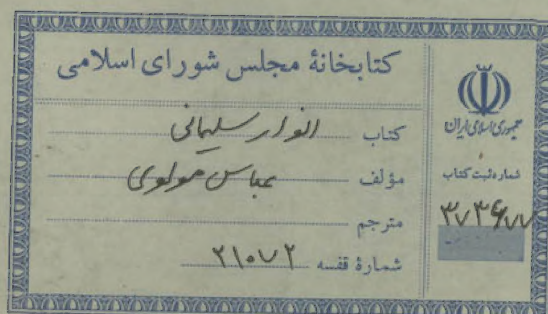 کتابخانهٔ مجلس شورای اسلامی
کتاب انوار سلیمانی
مؤلف عباس مولوی
مترجم
شمارهٔ قفسه ۲۱۰۷۲
جمهوری اسلامی ایران
شماره ثبت کتاب
۳۷۳۶۷۷